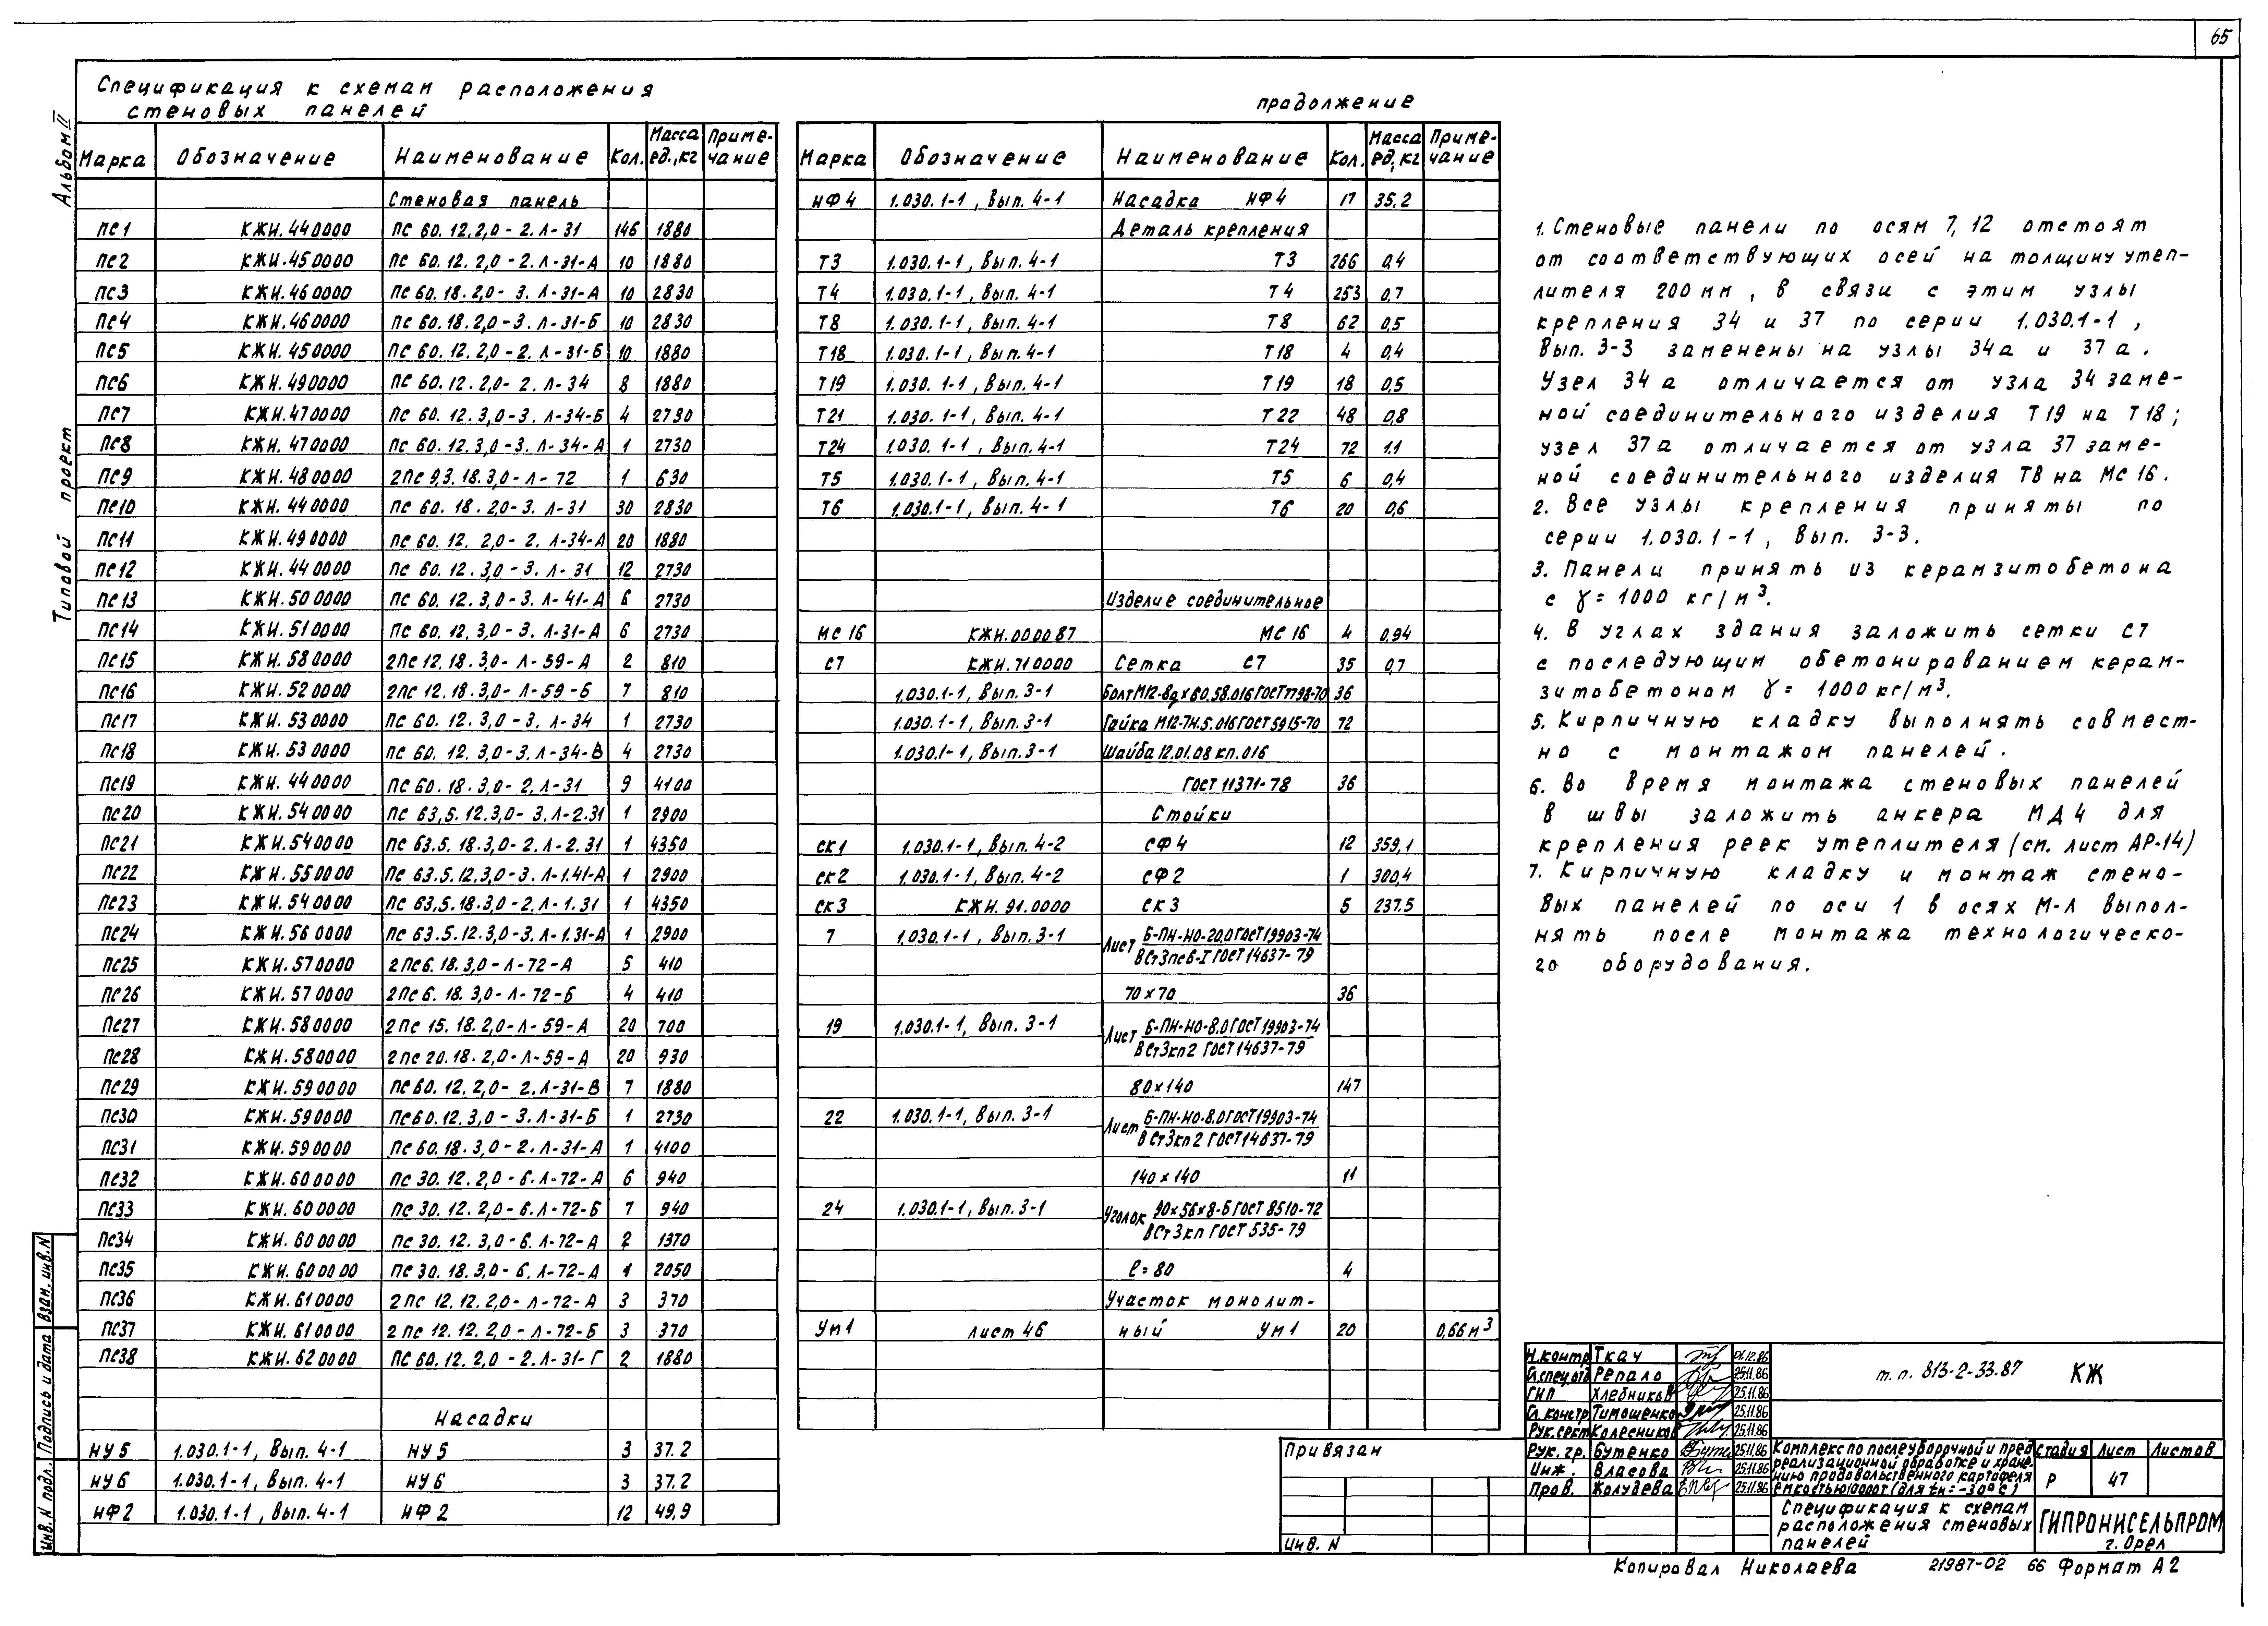 65
Альбом II
Типовой проект
Спецификация к схемам расположения
стеновых панелей
Марка Обозначение Наименование Кол. Масса ед., кг Примечание
Стеновая панель
ПС1 КЖИ.440000 ПС 60.12.2,0-2.Л-31 146 1880
ПС2 КЖИ.450000 ПС 60.12.2,0-2.Л-31-А 10 1880
ПС3 КЖИ.460000 ПС 60.18.2,0-3.Л-31-А 10 2830
ПС4 КЖИ.460000 ПС 60.18.2,0-3.Л-31-Б 10 2830
ПС5 КЖИ.450000 ПС 60.12.2,0-2.Л-31-Б 10 1880
ПС6 КЖИ.490000 ПС 60.12.2,0-2.Л-34 8 1880
ПС7 КЖИ.470000 ПС 60.12.3,0-3.Л-34-Б 4 2730
ПС8 КЖИ.470000 ПС 60.12.3,0-3.Л-34-А 1 2730
ПС9 КЖИ.480000 2ПС 9,3.18.3,0-Л-72 1 630
ПС10 КЖИ.440000 ПС 60.18.2,0-3.Л-31 30 2830
ПС11 КЖИ.490000 ПС 60.12.2,0-2.Л-34-А 20 1880
ПС12 КЖИ.440000 ПС 60.12.3,0-3.Л-31 12 2730
ПС13 КЖИ.500000 ПС 60.12.3,0-3.Л-41-А 6 2730
ПС14 КЖИ.510000 ПС 60.12.3,0-3.Л-31-А 6 2730
ПС15 КЖИ.580000 2ПС 12.18.3,0-Л-59-А 2 810
ПС16 КЖИ.520000 2ПС 12.18.3,0-Л-59-Б 7 810
ПС17 КЖИ.530000 ПС 60.12.3,0-3.Л-34 1 2730
ПС18 КЖИ.530000 ПС 60.12.3,0-3.Л-34-В 4 2730
ПС19 КЖИ.440000 ПС 60.18.3,0-2.Л-31 9 4100
ПС20 КЖИ.540000 ПС 63,5.12.3,0-3.Л-2.31 1 2900
ПС21 КЖИ.540000 ПС 63.5.18.3,0-2.Л-2.31 1 4350
ПС22 КЖИ.550000 ПС 63.5.12.3,0-3.Л-1.41-А 1 2900
ПС23 КЖИ.540000 ПС 63,5.18.3,0-2.Л-1.31 1 4350
ПС24 КЖИ.560000 ПС 63.5.12.3,0-3.Л-1.31-А 1 2900
ПС25 КЖИ.570000 2ПС6.18.3,0-Л-72-А 5 410
ПС26 КЖИ.570000 2ПС 6.18.3,0-Л-72-Б 4 410
ПС27 КЖИ.580000 2ПС 15.18.2,0-Л-59-А 20 700
ПС28 КЖИ.580000 2ПС 20.18.2,0-Л-59-А 20 930
ПС29 КЖИ.590000 ПС60.12.2,0-2.Л-31-В 7 1880
ПС30 КЖИ.590000 ПС60.12.3,0-3.Л-31-Б 1 2730
ПС31 КЖИ.590000 ПС 60.18.3,0-2.Л-31-А 1 4100
ПС32 КЖИ.600000 ПС 30.12.2,0-6.Л-72-А 6 940
ПС33 КЖИ.600000 ПС 30.12.2,0-6.Л-72-Б 7 940
ПС34 КЖИ.600000 ПС 30.12.3,0-6.Л-72-А 2 1370
ПС35 КЖИ.600000 ПС 30.18.3,0-6.Л-72-А 1 2050
ПС36 КЖИ.610000 2ПС 12.12.2,0-Л-72-А 3 370
ПС37 КЖИ.610000 2ПС 12.12.2,0-Л-72-Б 3 370
ПС38 КЖИ.620000 ПС 60.12.2,0-2.Л-31-Г 2 1880
Насадки
НУ5 1.030.1-1, Вып. 4-1 НУ5 3 37.2
НУ6 1.030.1-1, Вып. 4-1 НУ6 3 37.2
НФ2 1.030.1-1, Вып. 4-1 НФ2 12 49,9
продолжение
Марка Обозначение Наименование Кол. Масса ед, кг Примечание
НФ4 1.030.1-1, Вып. 4-1 Насадка НФ4 17 35.2
Деталь крепления
Т3 1.030.1-1, Вып. 4-1 Т3 266 0,4
Т4 1.030.1-1, Вып. 4-1 Т4 253 0,7
Т8 1.030.1-1, Вып. 4-1 Т8 62 0,5
Т18 1.030.1-1, Вып. 4-1 Т18 4 0,4
Т19 1.030.1-1, Вып. 4-1 Т19 18 0,5
Т21 1.030.1-1, Вып. 4-1 Т22 48 0,8
Т24 1.030.1-1, Вып. 4-1 Т24 72 1.1
Т5 1.030.1-1, Вып. 4-1 Т5 6 0,4
Т6 1.030.1-1, Вып. 4-1 Т6 20 0,6
Изделие соединительное
МС 16 КЖИ.000087 МС 16 4 0,94
С7 КЖИ.710000 Сетка С7 35 0,7
1.030.1-1, Вып. 3-1 Болт М12-8gх60.58.016 ГОСТ 7798-70 36
1.030.1-1, Вып. 3-1 Гайка М12-7Н.5.016 ГОСТ 5915-70 72
1.030.1-1, Вып. 3-1 Шайба 12.01.08 кп.016
ГОСТ 11371-78 36
Стойки
СК1 1.030.1-1, Вып. 4-2 СФ4 12 359,1
СК2 1.030.1-1, Вып. 4-2 СФ2 1 300,4
СК3 КЖИ.91.0000 СК3 5 237.5
7 1.030.1-1, Вып. 3-1 Лист Б-ПН-НО-20,0 ГОСТ 19903-74
ВСт3пс6-I ГОСТ 14637-79
70×70 36
19 1.030.1-1, Вып. 3-1 Лист Б-ПН-НО-8.0 ГОСТ 19903-74
ВСт3кп2 ГОСТ 14637-79
80×140 147
22 1.030.1-1, Вып. 3-1 Лист Б-ПН-НО-8.0 ГОСТ 19903-74
ВСт3кп2 ГОСТ 14637-79
140×140 11
24 1.030.1-1, Вып. 3-1 Уголок 90×56×8-Б ГОСТ 8510-72
ВСт3кп ГОСТ 535-79
ℓ=80 4
Участок монолит-
Ум1 Лист 46 ный Ум1 20 0,66м³
1. Стеновые панели по осям 7, 12 отстоят
от соответствующих осей на толщину утеп-
лителя 200 мм, в связи с этим узлы
крепления 34 и 37 по серии 1.030.1-1,
Вып. 3-3 заменены на узлы 34а и 37а.
Узел 34а отличается от узла 34 заме-
ной соединительного изделия Т19 на Т18;
узел 37а отличается от узла 37 заме-
ной соединительного изделия Т8 на МС16.
2. Все узлы крепления приняты по
серии 1.030.1-1, Вып. 3-3.
3. Панели принять из керамзитобетона
с γ=1000 кг/м³.
4. В углах здания заложить сетки С7
с последующим обетонированием керам-
зитобетоном γ= 1000 кг/м³.
5. Кирпичную кладку выполнять совмест-
но с монтажом панелей.
6. Во время монтажа стеновых панелей
в швы заложить анкера МД4 для
крепления реек утеплителя (см. лист АР-14)
7. Кирпичную кладку и монтаж стено-
вых панелей по оси 1 в осях М-Л выпол-
нять после монтажа технологическо-
го оборудования.
Н.контр Ткач 01.12.86
Гл.спец.отд Репало 25.11.86
ГИП Хлебников 25.11.86
Гл. констр Тимошенко 25.11.86
Рук.сект Колесников 25.11.86
Рук. гр. Бутенко 25.11.86
Инж. Власова 25.11.86
Пров. Жолудева 25.11.86
т.п. 813-2-33.87 КЖ
Комплекс по послеуборочной и пред
реализационной обработке и хране-
нию продовольственного картофеля
емкостью 10000т (для tн=-30°С)
Стадия Лист Листов
Р 47
Спецификация к схемам
расположения стеновых
панелей
ГИПРОНИСЕЛЬПРОМ
г. Орел
Привязан
Инв. N
Инв. N подл. Подпись и дата Взам. инв. N
Копировал Николаева 21987-02 66 Формат А2